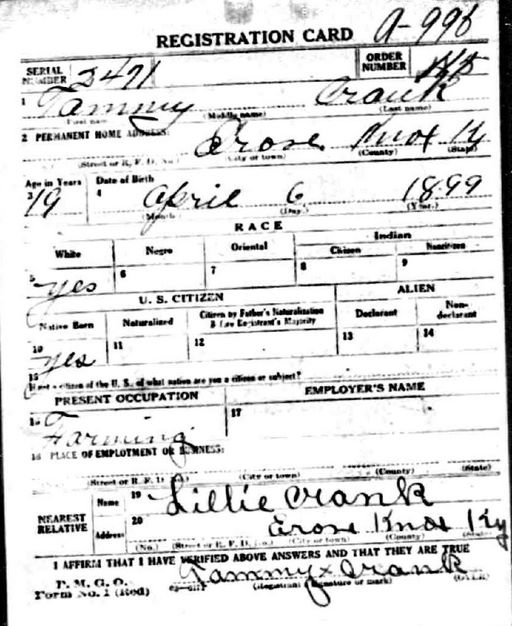 A-996
REGISTRATION CARD
SERIAL NUMBER 3471 ORDER NUMBER
1 Tammy Crank
First name (Middle name) (Last name)
2 PERMANENT HOME ADDRESS: Erose Knox Ky
(Street or R. F. D. No.) (City or town) (County) (State)
Age in Years Date of Birth
3 19 4 April 6 1899
(Month.) (Day.) (Year.)
RACE
White Negro Oriental Indian
Citizen Noncitizen
5 yes 6 7 8 9
U. S. CITIZEN ALIEN
Native Born Naturalized Citizen by Father's Naturalization Declarant Non-declarant
Before Registrant's Majority
10 yes 11 12 13 14
15 If not a citizen of the U. S., of what nation are you a citizen or subject?
PRESENT OCCUPATION EMPLOYER'S NAME
16 Farming 17
18 PLACE OF EMPLOYMENT OR BUSINESS:
(Street or R. F. D. No.) (City or town) (County) (State)
NEAREST RELATIVE Name 19 Lillie Crank
Address 20 Erose Knox Ky
(No.) (Street or R. F. D. No.) (City or town) (County) (State)
I AFFIRM THAT I HAVE VERIFIED ABOVE ANSWERS AND THAT THEY ARE TRUE
P. M. G. O. Tammy x Crank
Form No. 1 (Red) (Registrant's signature or mark) (OVER)